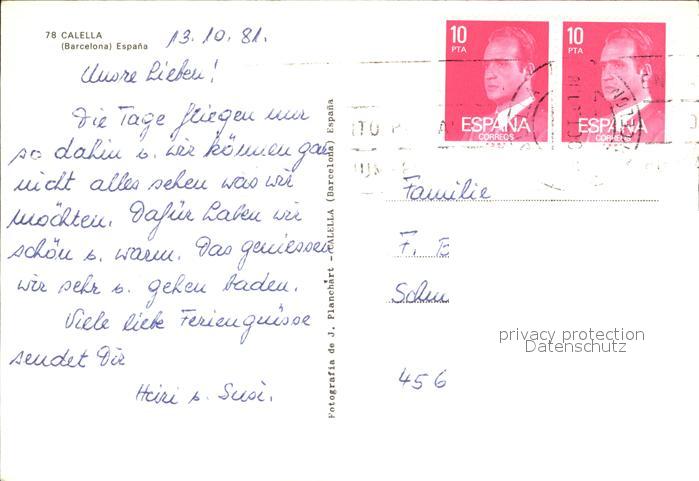 78 CALELLA
(Barcelona) España
13.10.81.
Unsre Lieben!
Die Tage fliegen nur
so dahin u. wir können gar
nicht alles sehen was wir
möchten. Dafür haben wir
schön u. warm. Das geniessen
wir sehr u. gehen baden.
Viele liebe Feriengrüsse
sendet Dir
Heiri u. Susi.
Fotografía de J. Planchart - CALELLA (Barcelona) España
10
PTA
ESPAÑA
CORREOS
10
PTA
ESPAÑA
CORREOS
Familie
F. E
Schu
456
privacy protection
Datenschutz